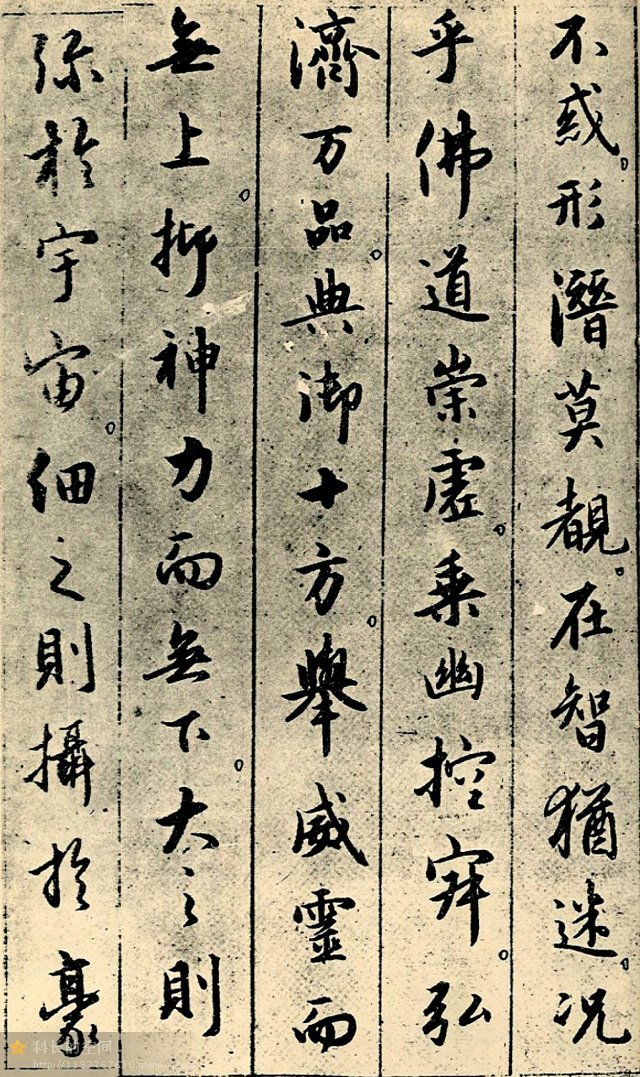 不惑形潛莫覩在智猶迷况
乎佛道崇虛乗幽控寂弘
濟万品典御十方舉威靈而
無上抑神力而無下大之則
弥於宇宙細之則攝於豪
科长的空间